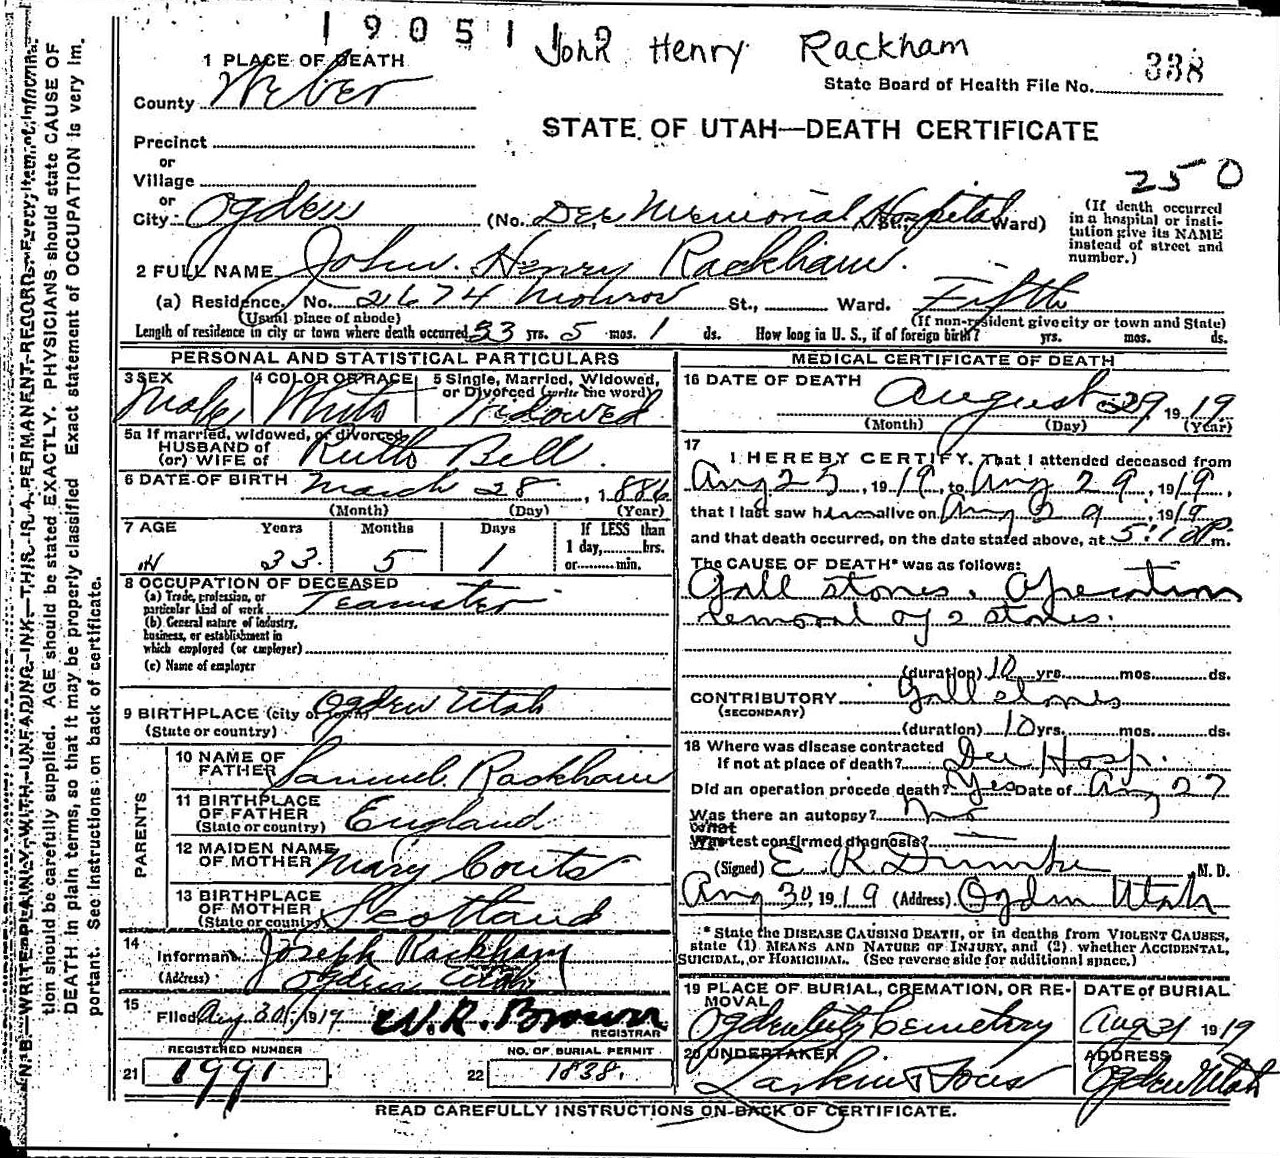 19051 John Henry Rackham
338
State Board of Health File No.
1 PLACE OF DEATH
County Weber
STATE OF UTAH—DEATH CERTIFICATE
Precinct
or
Village
or
City Ogden (No. Dee Memorial Hospital St., Ward)
250
(If death occurred
in a hospital or insti-
tution give its NAME
instead of street and
number.)
2 FULL NAME John Henry Rackham.
(a) Residence, No. 2674 Monroe St., Ward. Fifth
(Usual place of abode) (If non-resident give city or town and State)
Length of residence in city or town where death occurred 33 yrs. 5 mos. 1 ds. How long in U. S., if of foreign birth? yrs. mos. ds.
PERSONAL AND STATISTICAL PARTICULARS
3 SEX 4 COLOR OR RACE 5 Single, Married, Widowed,
or Divorced (write the word)
Male White Widowed
5a If married, widowed, or divorced
HUSBAND of
(or) WIFE of Ruth Bell.
6 DATE OF BIRTH March 28, 1886
(Month) (Day) (Year)
7 AGE Years Months Days If LESS than
1 day, hrs.
or min.
33 5 1
8 OCCUPATION OF DECEASED
(a) Trade, profession, or
particular kind of work Teamster
(b) General nature of industry,
business, or establishment in
which employed (or employer)
(c) Name of employer
9 BIRTHPLACE (city or town) Ogden Utah
(State or country)
PARENTS
10 NAME OF
FATHER Samuel Rackham
11 BIRTHPLACE
OF FATHER England
(State or country)
12 MAIDEN NAME
OF MOTHER Mary Couts
13 BIRTHPLACE
OF MOTHER Scotland
(State or country)
14
Informant Joseph Rackham
(Address) Ogden Utah
15
Filed Aug 30, 1919 W. R. Brown
REGISTRAR
REGISTERED NUMBER NO. OF BURIAL PERMIT
21 1991 22 1838.
MEDICAL CERTIFICATE OF DEATH
16 DATE OF DEATH August 29 1919
(Month) (Day) (Year)
17
I HEREBY CERTIFY, That I attended deceased from
Aug 25, 1919, to Aug 29, 1919,
that I last saw him alive on Aug 29, 1919
and that death occurred, on the date stated above, at 5:10 P m.
The CAUSE OF DEATH* was as follows:
Gall stones. Operation
removal of 2 stones.
(duration) 10 yrs. mos. ds.
CONTRIBUTORY Gall stones
(SECONDARY)
(duration) 10 yrs. mos. ds.
18 Where was disease contracted
If not at place of death? Dee Hosp.
Did an operation precede death? Yes Date of Aug 27
Was there an autopsy? No
What test confirmed diagnosis?
(Signed) E. R. Dumke, M. D.
Aug 30, 1919 (Address) Ogden Utah
* State the DISEASE CAUSING DEATH, or in deaths from VIOLENT CAUSES,
state (1) MEANS AND NATURE OF INJURY, and (2) whether ACCIDENTAL,
SUICIDAL, or HOMICIDAL. (See reverse side for additional space.)
19 PLACE OF BURIAL, CREMATION, OR RE-
MOVAL DATE of BURIAL
Ogden City Cemetery Aug 31 1919
20 UNDERTAKER ADDRESS
Larkin & Sons Ogden Utah
READ CAREFULLY INSTRUCTIONS ON BACK OF CERTIFICATE.
N. B.—WRITE PLAINLY WITH UNFADING INK—THIS IS A PERMANENT RECORD. Every item of informa-
tion should be carefully supplied. AGE should be stated EXACTLY. PHYSICIANS should state CAUSE OF
DEATH in plain terms, so that it may be properly classified. Exact statement of OCCUPATION is very im-
portant. See instructions on back of certificate.